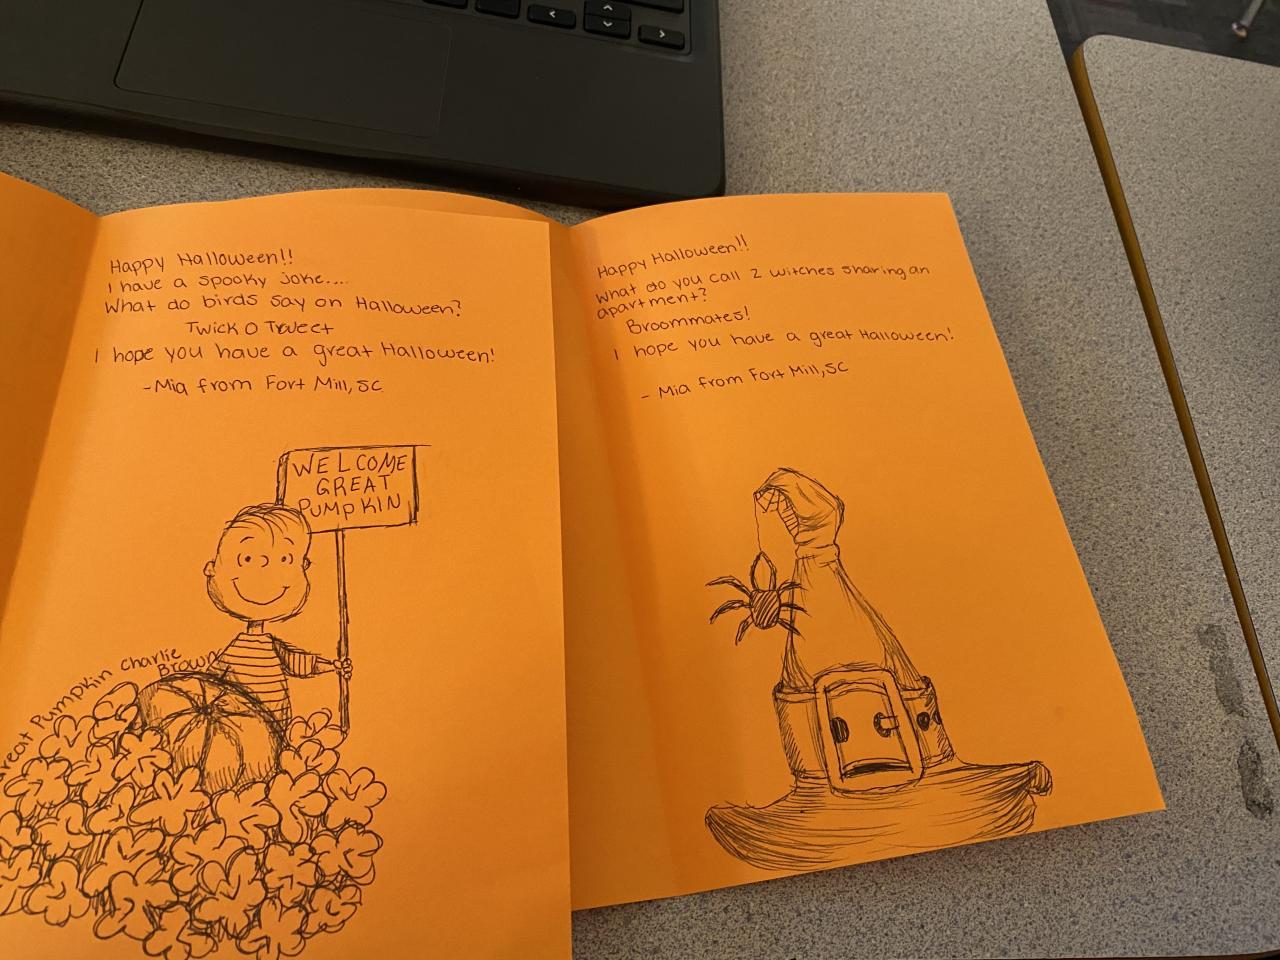 Happy Halloween!!
I have a spooky joke....
What do birds say on Halloween?
Twick O Tweet
I hope you have a great Halloween!
-Mia from Fort Mill, SC
WELCOME
GREAT
PUMPKIN
Great Pumpkin Charlie
Brown
Happy Halloween!!
What do you call 2 witches sharing an
apartment?
Broommates!
I hope you have a great Halloween!
- Mia from Fort Mill, SC